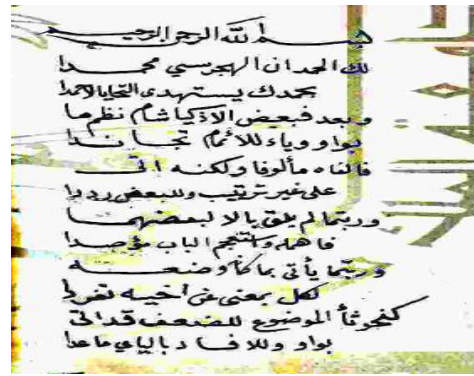 بسم الله الرحمن الرحيم
لك الحمد ان الهجرسي محمدا
بحمدك يستهدى التحايا لأحمدا
وبعد فبعض الاذكيا شام نظم ما
بواو وياء للأئمام
فالفاه مألوفا ولكنه اتى
على غير ترتيب وللبعض رددا
وربما لم يلق بالا لبعضها
الباب
وربما يأتي بما كان وضعه
لكل بمعنى عن أخيه تفردا
كنحو ثأ الموضوع للضعف قد أتى
بواو وللافساد بالياء ماعدا